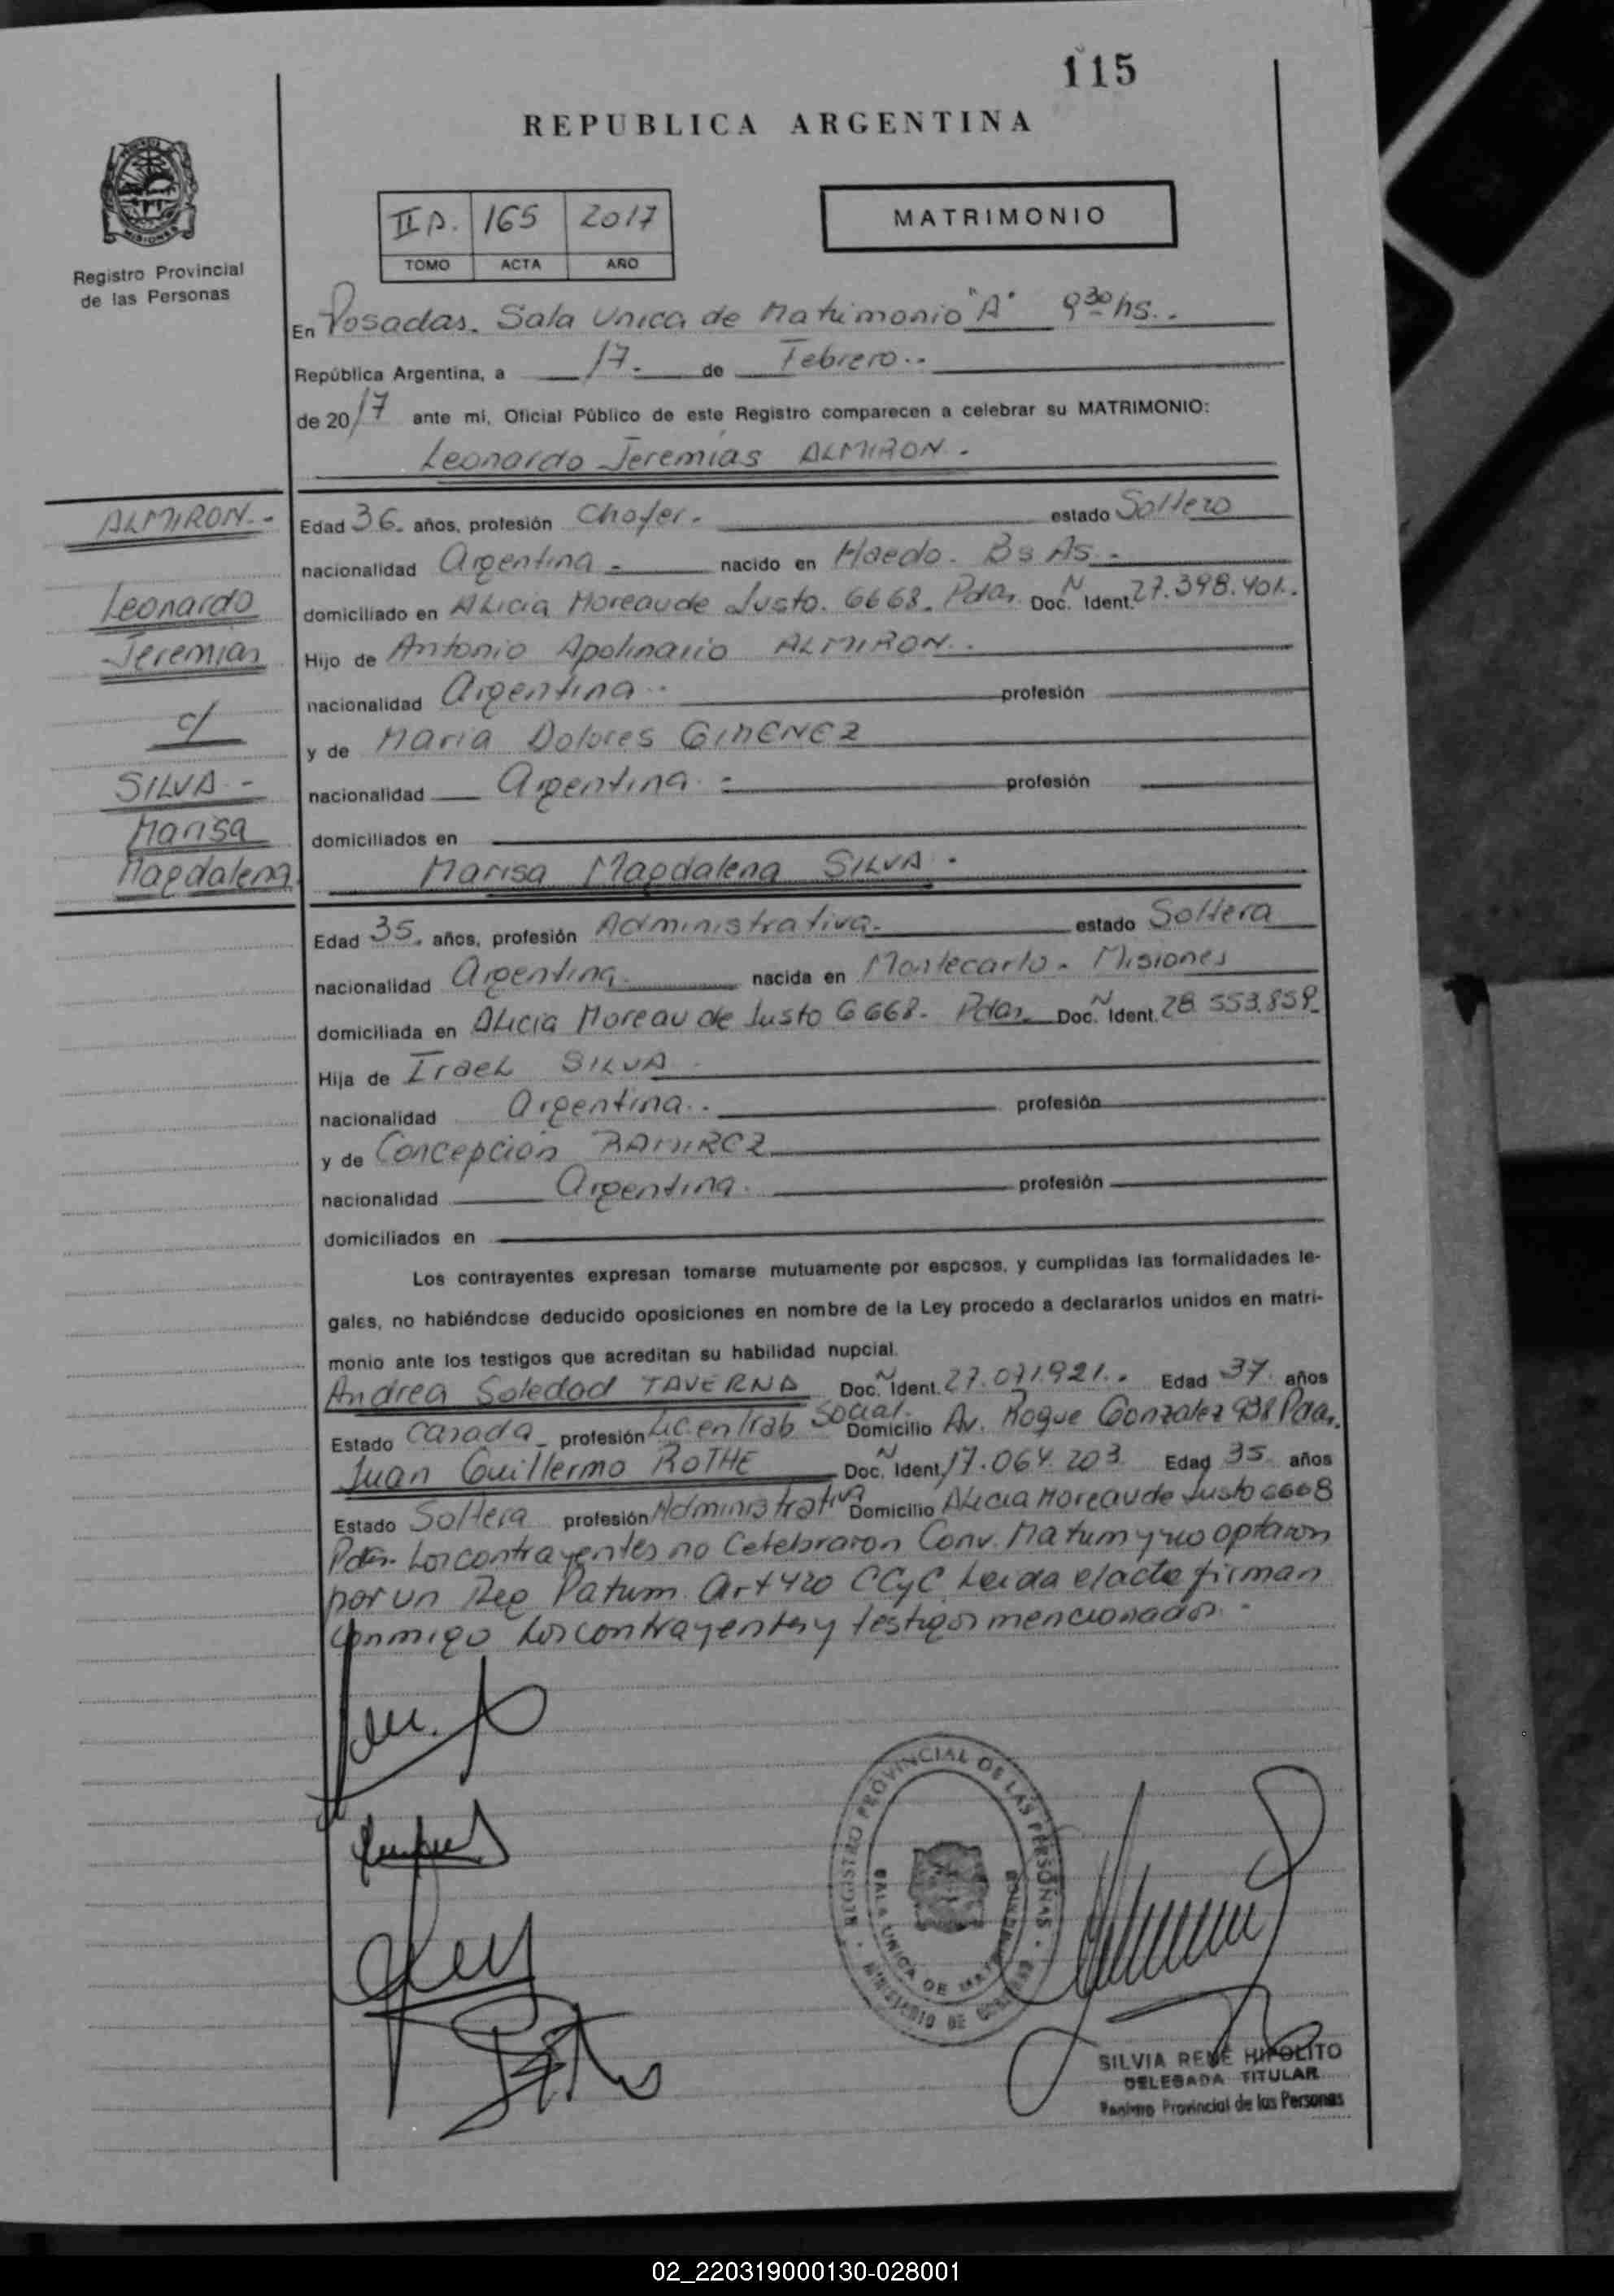 115
REPUBLICA ARGENTINA
MISIONES
Registro Provincial
de las Personas
II A. 165 2017
TOMO ACTA AÑO
MATRIMONIO
En Posadas. Sala Unica de Matrimonio "A" 9 30 hs..
República Argentina, a 17. de Febrero..
de 2017 ante mi, Oficial Público de este Registro comparecen a celebrar su MATRIMONIO:
Leonardo Jeremias ALMIRON.
ALMIRON.-
Leonardo
Jeremias
c/
SILVA -
Marisa
Magdalena
Edad 36. años, profesión Chofer. estado Soltero
nacionalidad Argentina - nacido en Haedo. Bs As.
domiciliado en Alicia Moreau de Justo. 6668. Pdas. Doc. N Ident. 27.398.401.
Hijo de Antonio Apolinario ALMIRON..
nacionalidad Argentina.. profesión
y de Maria Dolores GIMENEZ
nacionalidad Argentina - profesión
domiciliados en
Marisa Magdalena SILVA.
Edad 35. años, profesión Administrativa. estado Soltera
nacionalidad Argentina. nacida en Montecarlo. Misiones
domiciliada en Alicia Moreau de Justo 6668. Pdas. Doc. N Ident. 28.553.859.
Hija de Irael SILVA
nacionalidad Argentina.. profesión
y de Concepción RAMIREZ
nacionalidad Argentina. profesión
domiciliados en
Los contrayentes expresan tomarse mutuamente por esposos, y cumplidas las formalidades le-
gales, no habiéndose deducido oposiciones en nombre de la Ley procedo a declararlos unidos en matri-
monio ante los testigos que acreditan su habilidad nupcial.
Andrea Soledad TAVERNA Doc. N Ident. 27.071.921.. Edad 37 años
Estado Casada - profesión Lic en Trab Social. Domicilio Av. Roque Gonzalez 938 Pdas.
Juan Guillermo ROTHE Doc. N Ident. 17.064.203. Edad 35 años
Estado Soltera profesión Administrativa Domicilio Alicia Moreau de Justo 6668
Pdas. Los contrayentes no Celebraron Conv. Matrim y no optaron
por un Reg Patrim. Art 420 CCyC Leida el acta firman
conmigo Los contrayentes y testigos mencionados. -
REGISTRO PROVINCIAL DE LAS PERSONAS
SALA UNICA DE
MINISTERIO DE
SILVIA RENÉ HIPOLITO
DELEGADA TITULAR
Registro Provincial de las Personas
02_220319000130-028001